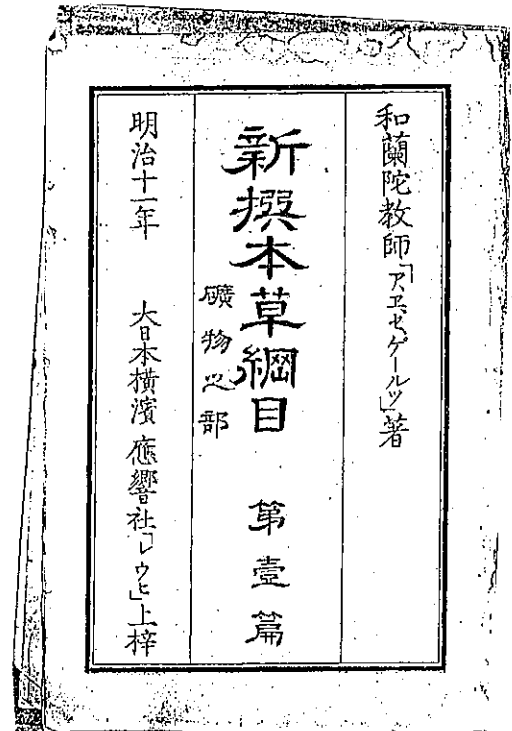 和蘭陀教師「アエ、セ、ゲールツ」著
新撰本草綱目 第壹篇
礦物之部
明治十一年 大日本横濱應響社「レウヒ」上梓